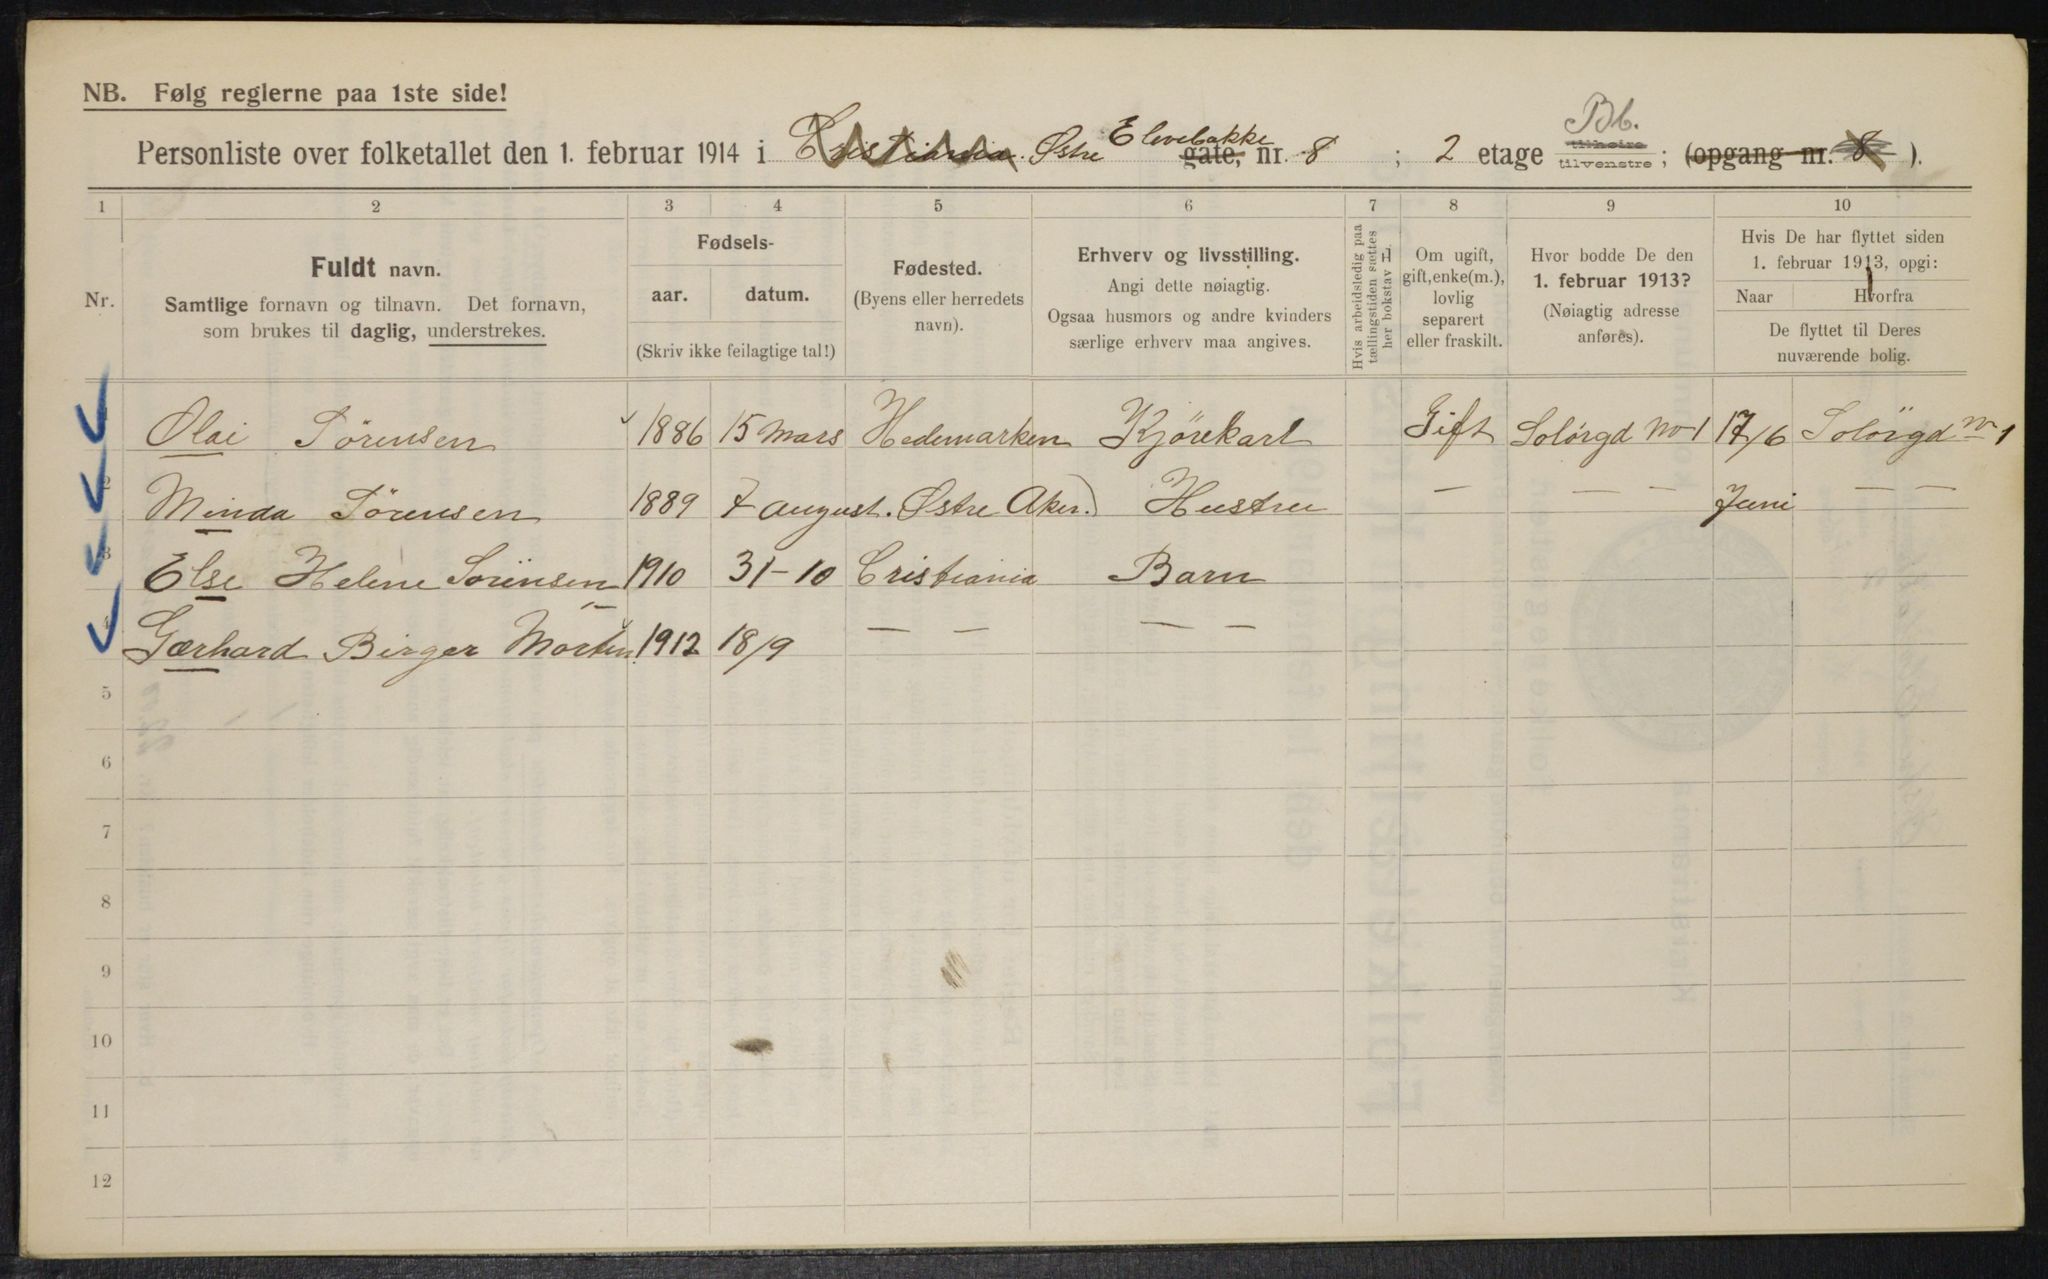 NB. Følg reglerne paa 1ste side!
Bb.
Personliste over folketallet den 1. februar 1914 i Cristiania Østre Elvebakke gate, nr. 8 ; 2 etage tilhøire tilvenstre ; (opgang nr. 8 ).
1 2 3 4 5 6 7 8 9 10
Nr.
Fuldt navn.
Samtlige fornavn og tilnavn. Det fornavn,
som brukes til daglig, understrekes.
Fødsels-
aar. datum.
(Skriv ikke feilagtige tal!)
Fødested.
(Byens eller herredets
navn).
Erhverv og livsstilling.
Angi dette nøiagtig.
Ogsaa husmors og andre kvinders
særlige erhverv maa angives.
Hvis arbeidsledig paa
tællingstiden sættes
her bokstav
Om ugift,
gift, enke(m.),
lovlig
separert
eller fraskilt.
Hvor bodde De den
1. februar 1913?
(Nøiagtig adresse
anføres).
Hvis De har flyttet siden
1. februar 1913, opgi:
Naar Hvorfra
De flyttet til Deres
nuværende bolig.
Olai Sörensen 1886 15 mars Hedemarken Kjörekarl Gift Solörgd No 1 17/6 Solörgd No 1
2 Minda Sörensen 1889 7 august. Østre Aker.) Hustru — — — Juni — —
3 Else Helene Sörensen 1910 31-10 Cristiania Barn
4 Gærhard Birger Morten 1912 18/9 — — — —
5
6
7
8
9
10
11
12